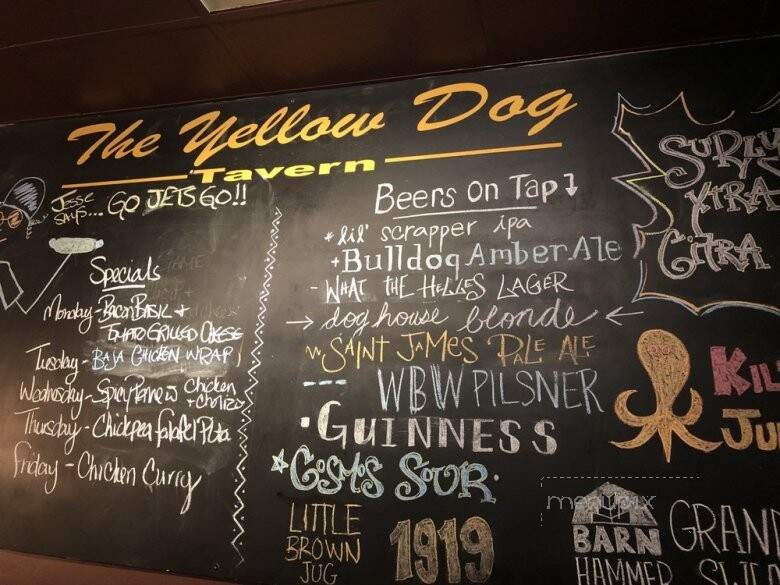 The Yellow Dog
Tavern
JESSE
SAYS... GO JETS GO!!
Specials
Monday - Bacon Basil +
Tomato Grilled Cheese
Tuesday - BAJA CHICKEN WRAP
Wednesday - Spicy Penne w/ Chicken
+ Chorizo
Thursday - Chickpea falafel Pita
Friday - Chicken Curry
Beers On Tap
* lil' scrapper ipa
+ Bulldog Amber Ale
- WHAT THE HELLES LAGER
→ dog house blonde ←
SAINT JAMES PALE ALE
--- WBW PILSNER
• GUINNESS
COSMOS SOUR.
LITTLE
BROWN
JUG
1919
SURLY
XTRA
CITRA
KIL
JU
menupix
BARN
HAMMER
GRAN